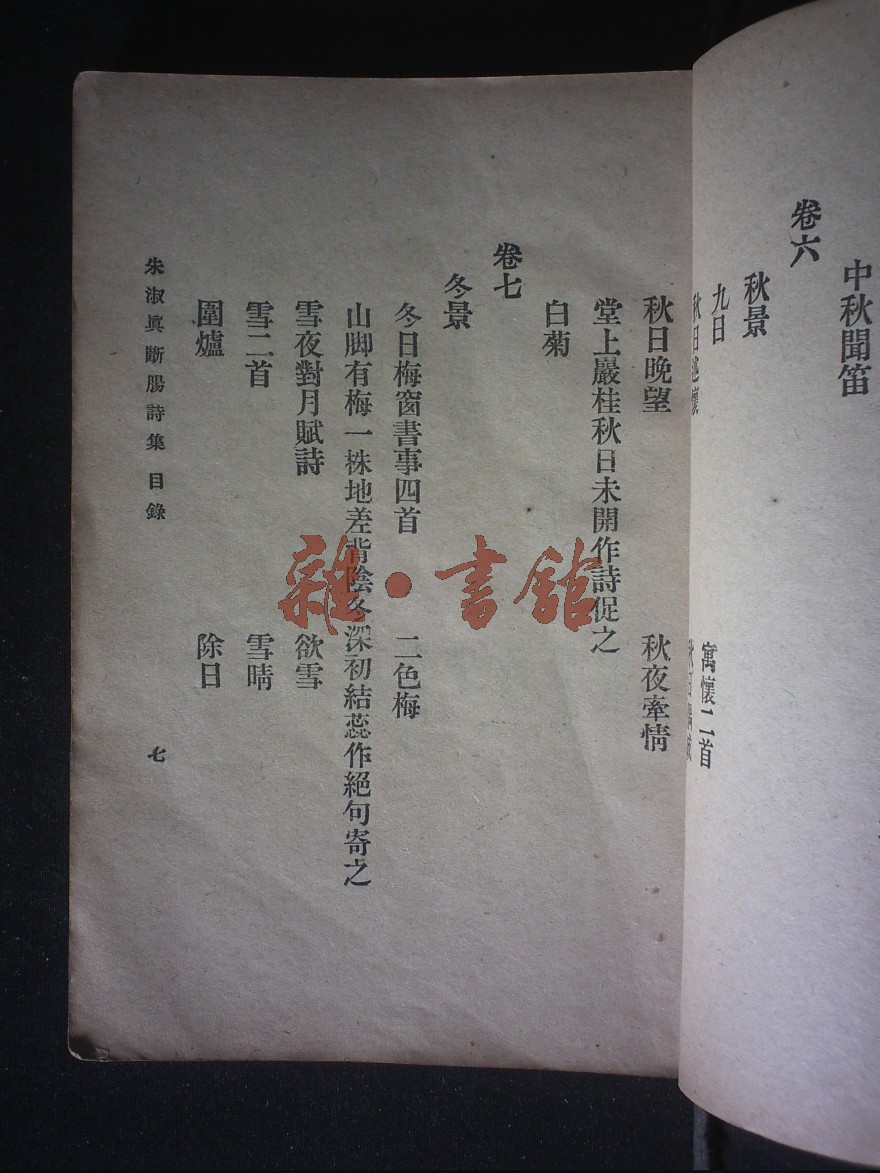 中秋聞笛
卷六
秋景
九日
寓懷二首
秋日晚望
秋夜牽情
堂上巖桂秋日未開作詩促之
白菊
卷七
冬景
冬日梅窗書事四首
二色梅
山脚有梅一株地差背陰冬深初結蕊作絕句寄之
雪夜對月賦詩
欲雪
雪二首
雪晴
圍爐
除日
朱淑眞斷腸詩集 目錄
七
雜·書館